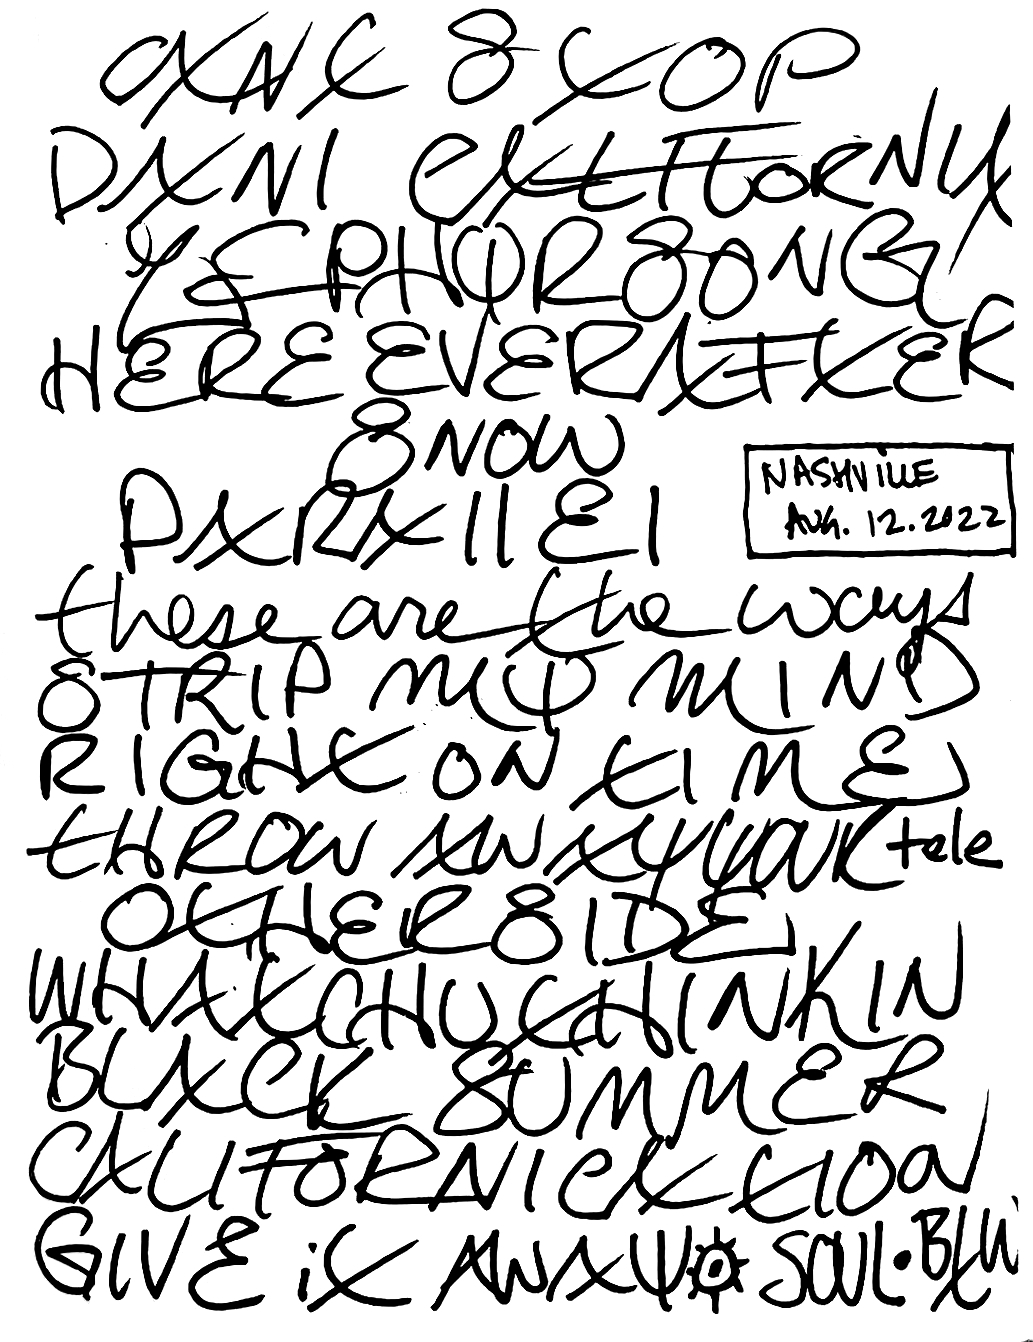 CANT STOP
DANI CALIFORNIA
ZEPHYR SONG
HERE EVER AFTER
SNOW
PARALLEL
NASHVILLE
AUG. 12.2022
these are the ways
STRIP MY MIND
RIGHT ON TIME
THROW AWAY YOUR tele
OTHERSIDE
WHATCHU THINKIN
BLACK SUMMER
CALIFORNICATION
GIVE iT AWAY SOUL •